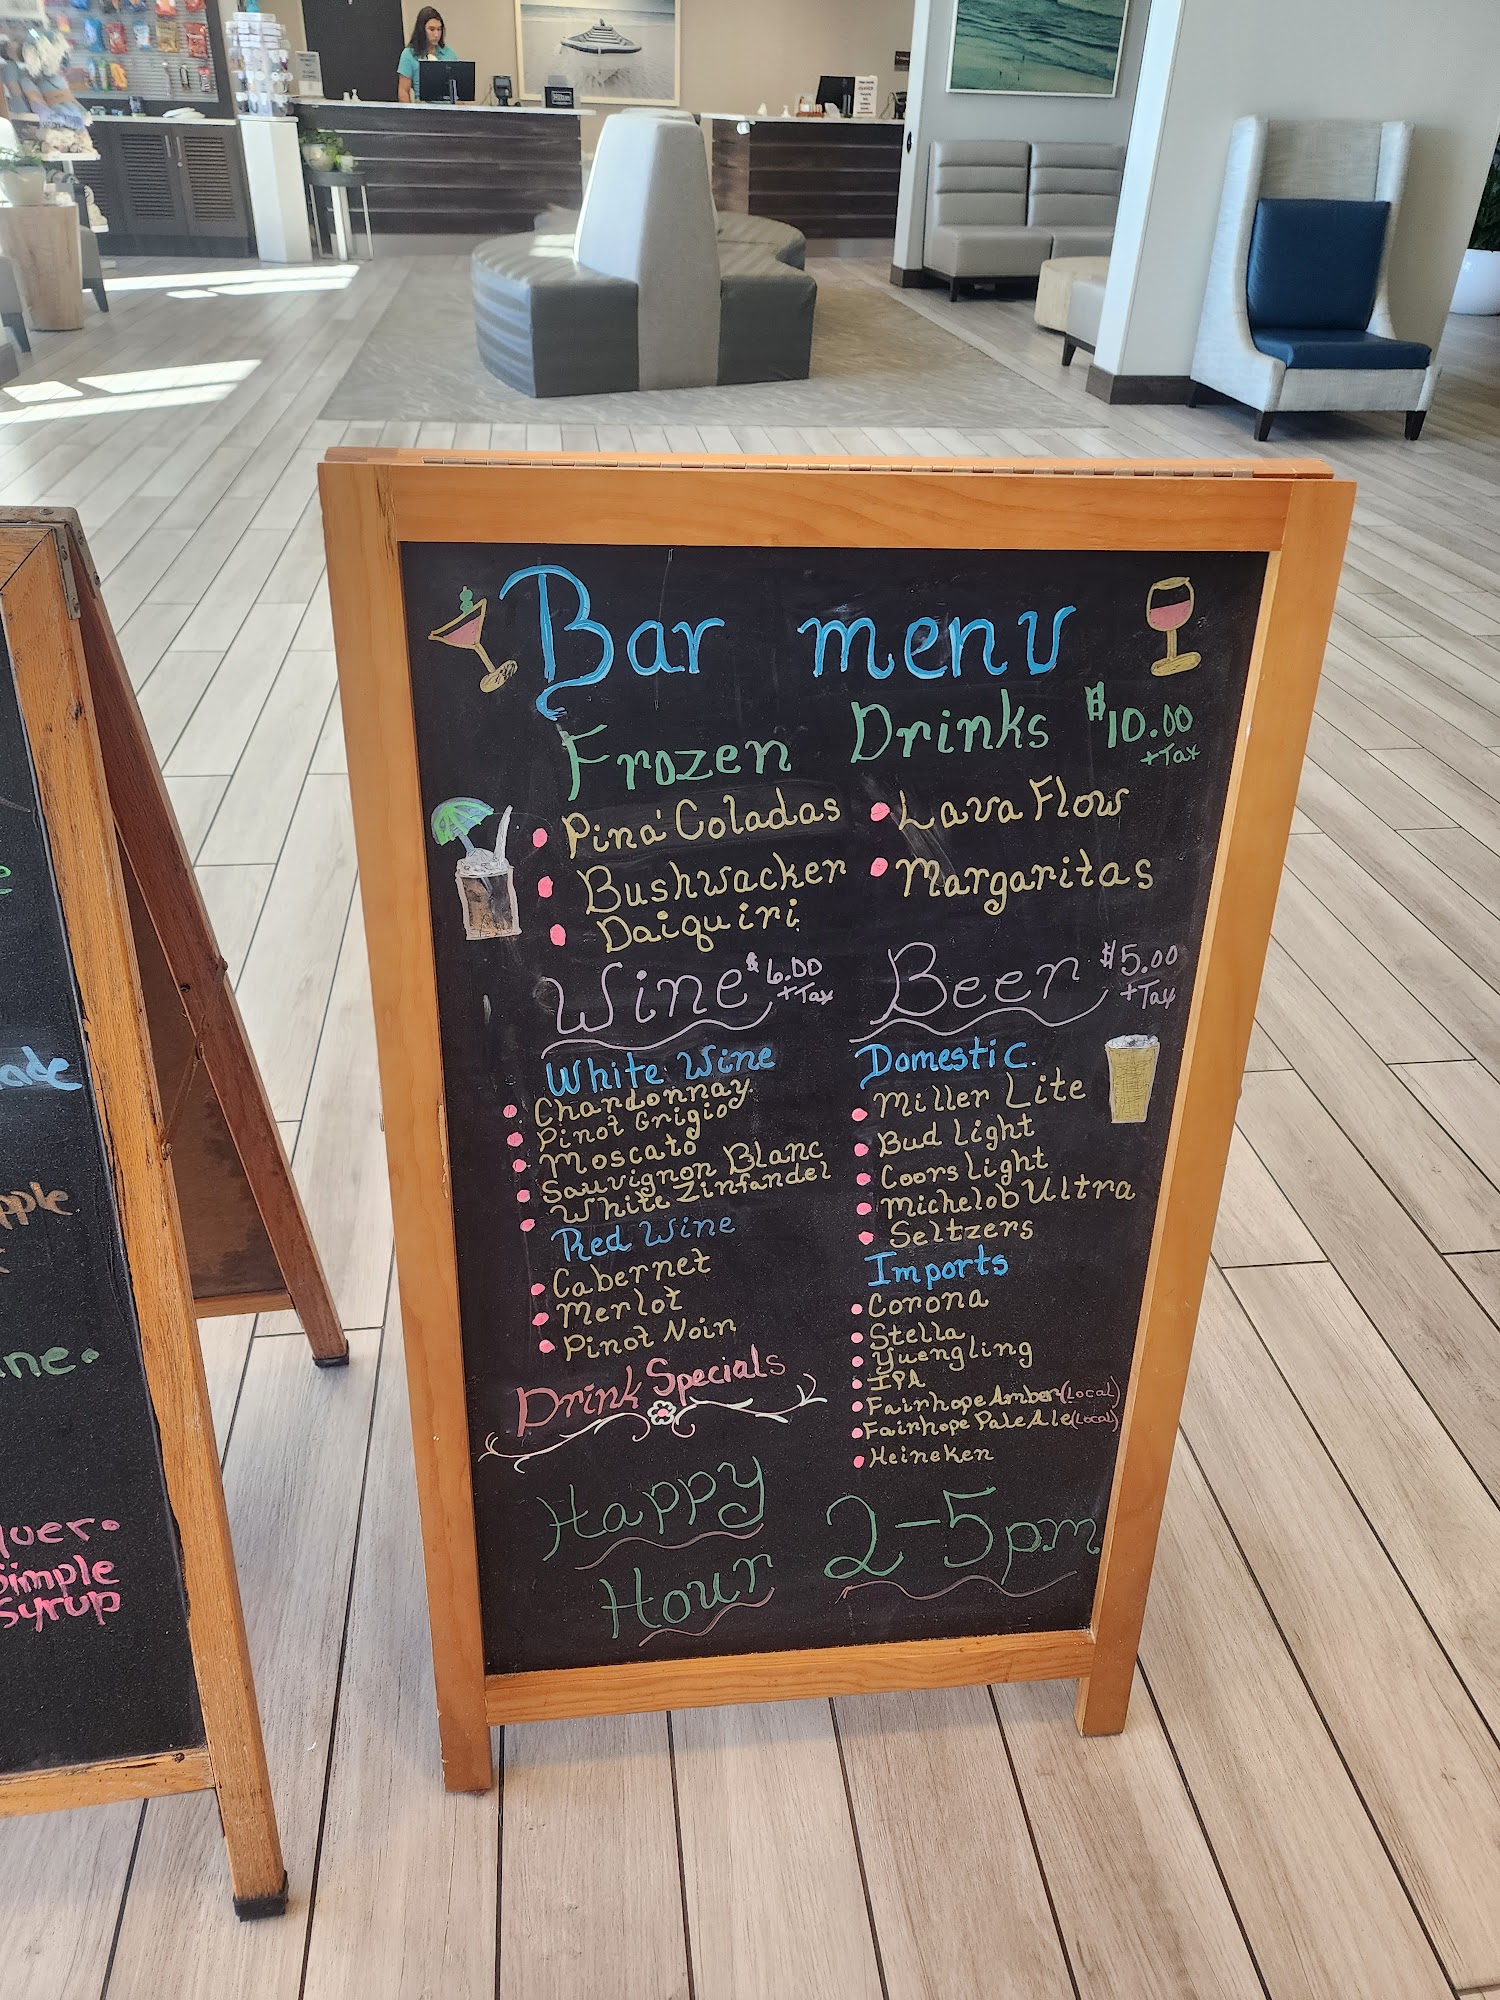 Bar menu
Frozen Drinks $10.00
+Tax
Pina' Coladas
Bushwacker
Daiquiri
Lava Flow
Margaritas
Wine $6.00
+Tax
White Wine
Chardonnay
Pinot Grigio
Moscato
Sauvignon Blanc
White Zinfandel
Red Wine
Cabernet
Merlot
Pinot Noin
Drink Specials
Beer $5.00
+Tax
Domestic
Miller Lite
Bud Light
Coors Light
Michelob Ultra
Seltzers
Imports
Corona
Stella
Yuengling
IPA
Fairhope Amber (Local)
Fairhope Pale Ale (Local)
Heineken
Happy
Hour 2-5pm
Simple
Syrup